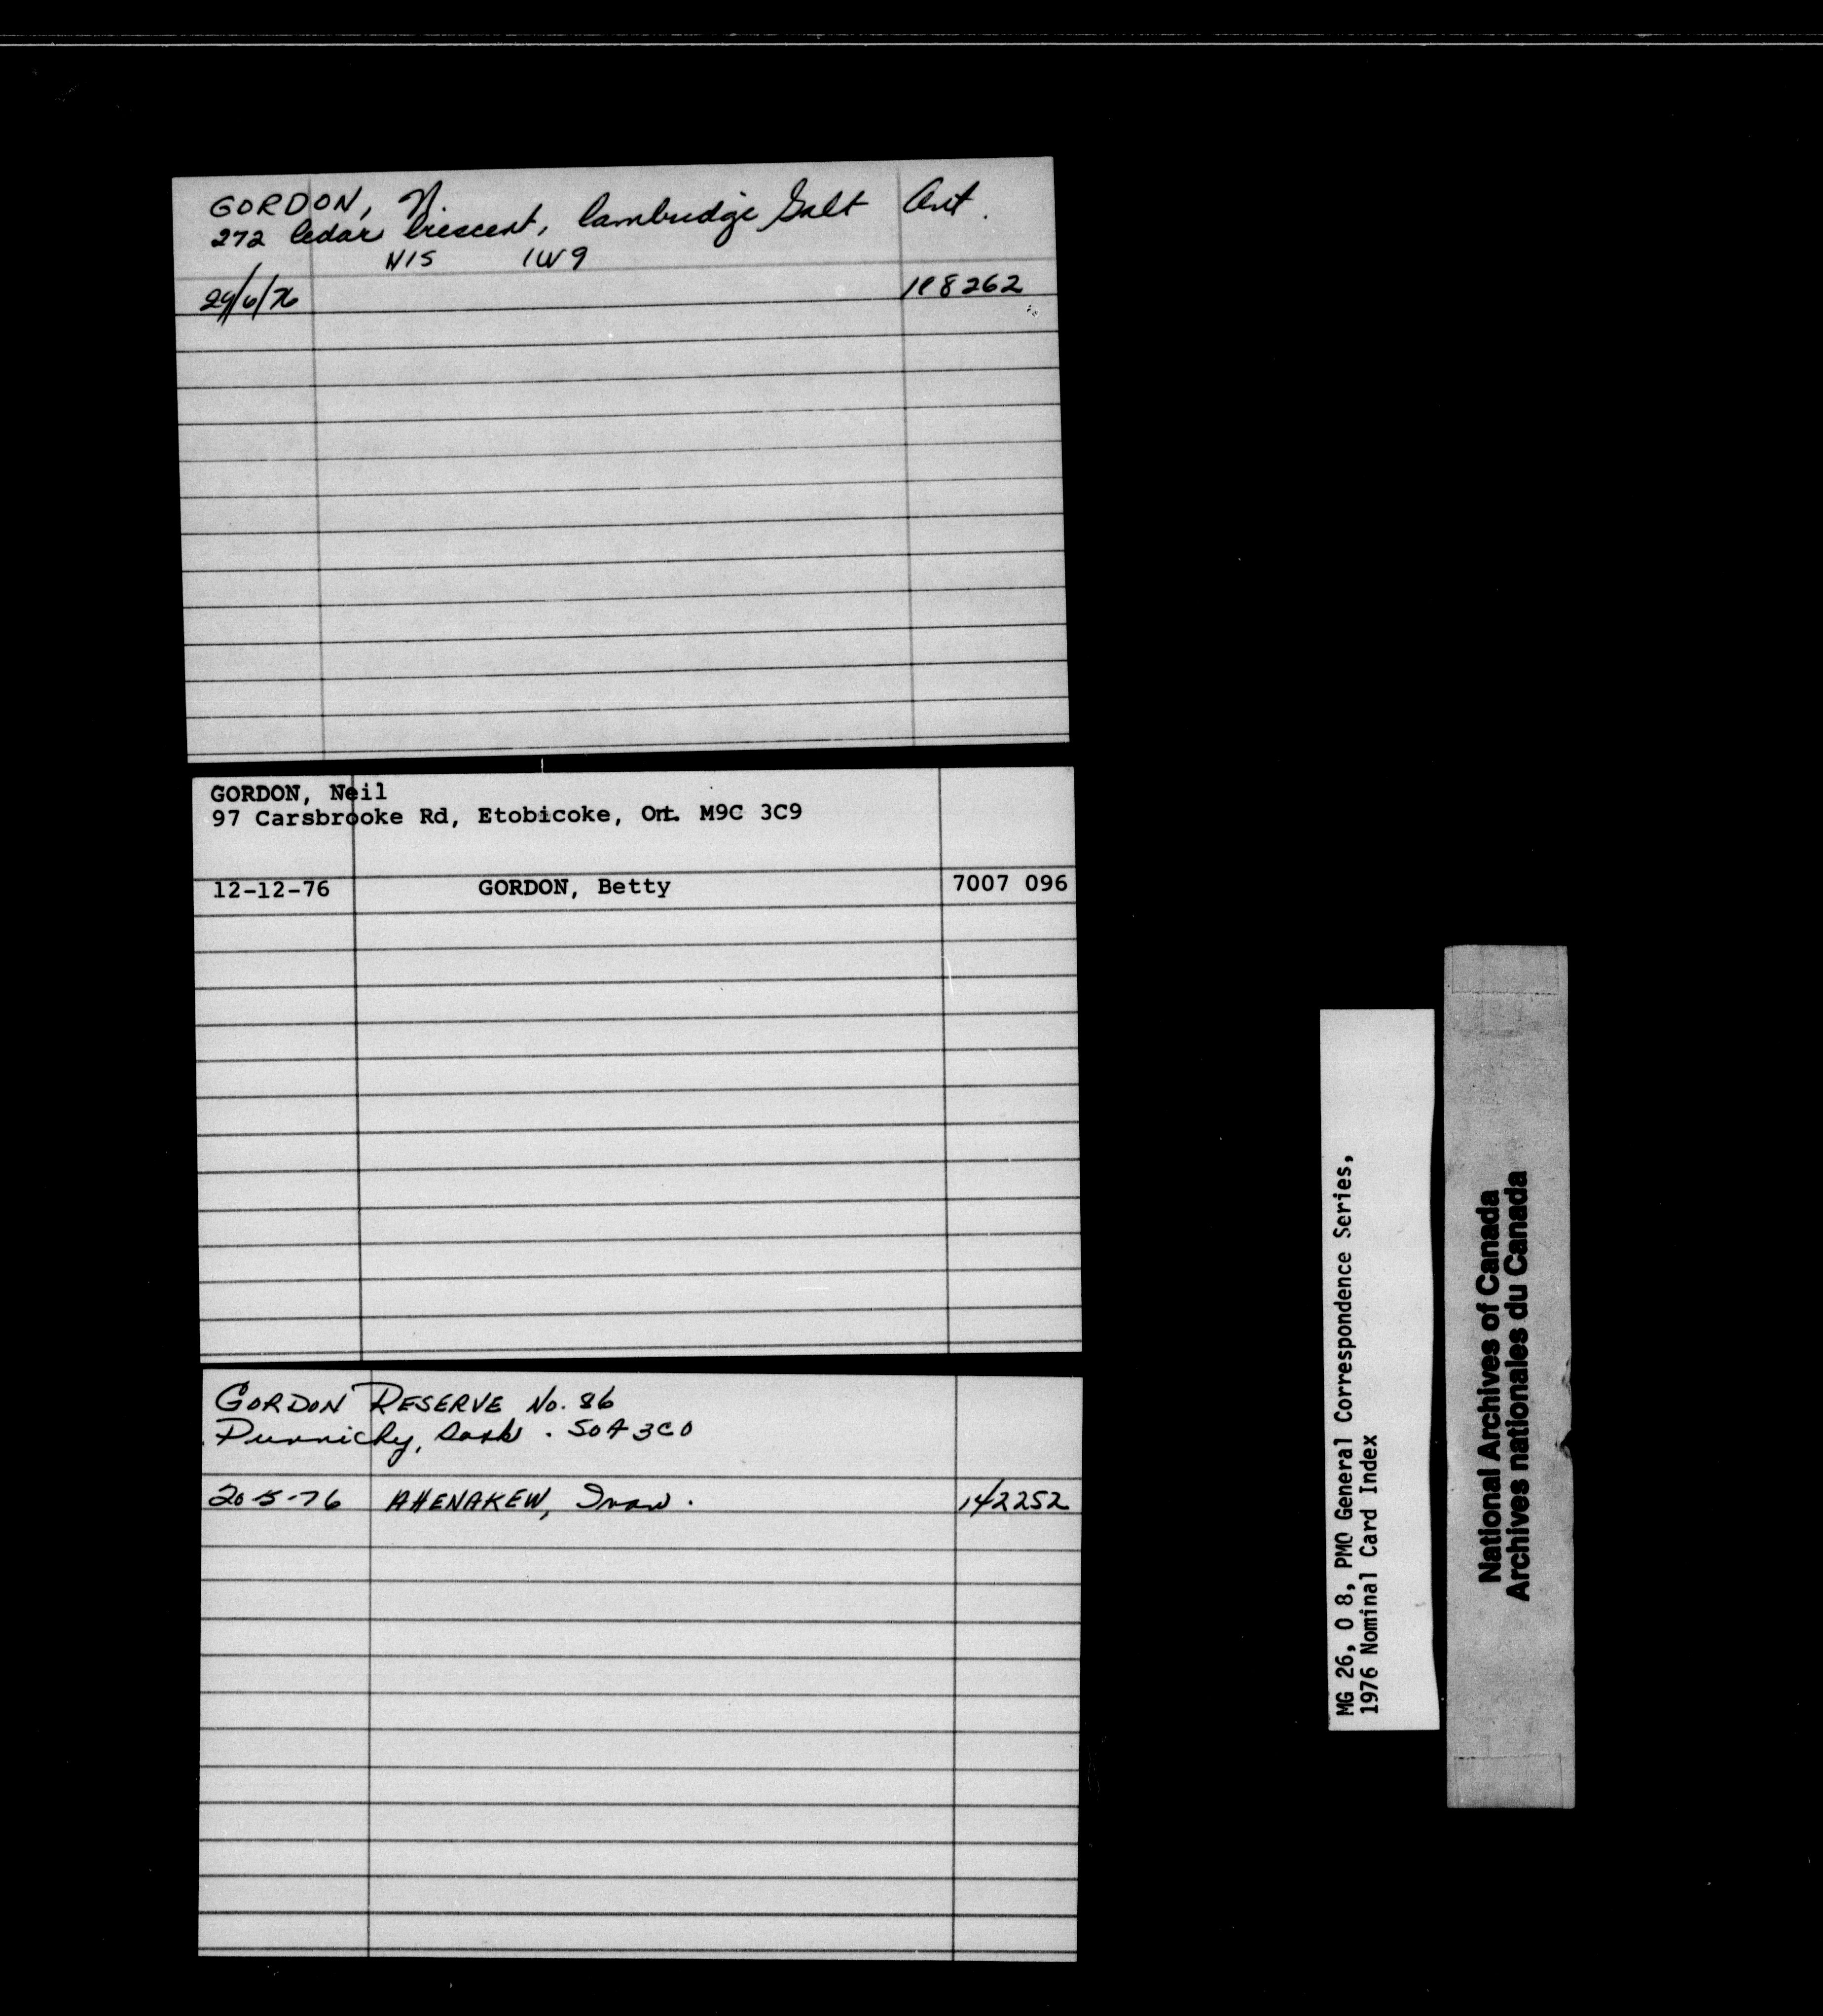 GORDON, N.
272 Cedar Crescent, Cambridge Galt Ont.
N1S 1W9
29/6/76 188262
GORDON, Neil
97 Carsbrooke Rd, Etobicoke, Ont. M9C 3C9
12-12-76 GORDON, Betty 7007 096
GORDON RESERVE No. 86
Punnichy, Sask. S0A 3C0
20-5-76 AHENAKEW, Ivan. 142252
MG 26, O 8, PMO General Correspondence Series,
1976 Nominal Card Index
National Archives of Canada
Archives nationales du Canada